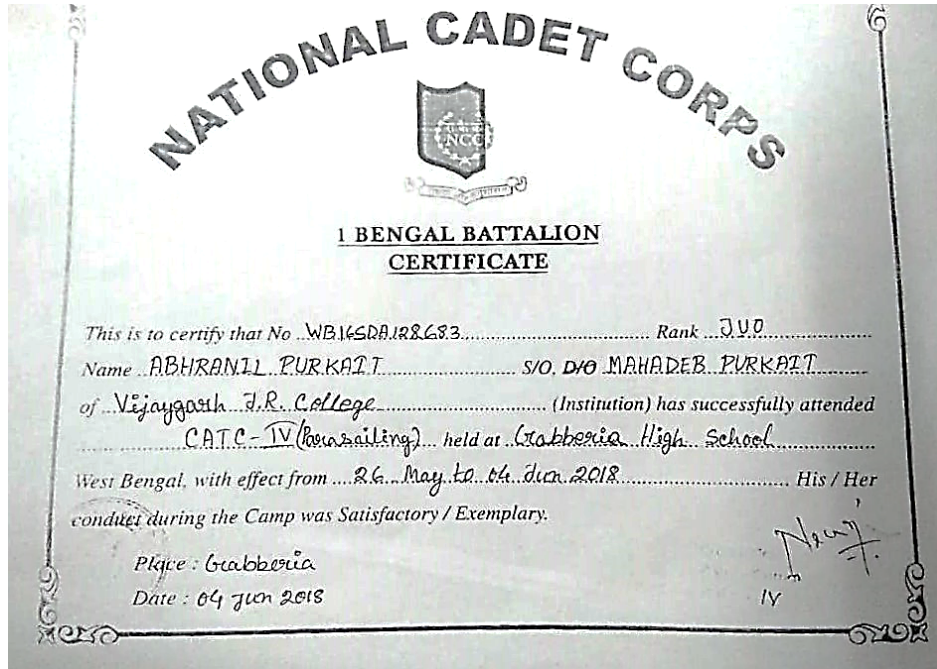 NATIONAL CADET CORPS
NCC
1 BENGAL BATTALION
CERTIFICATE
This is to certify that No ..WB16SDA128683.......... Rank ..JUO..........
Name ..ABHRANIL PURKAIT.......... S/O, D/O MAHADEB PURKAIT..........
of ..Vijaygarh J.R. College.......... (Institution) has successfully attended
..........CATC-IV (Parasailing).. held at ..Grabberia High School..........
West Bengal, with effect from ....26 May to 04 Jun 2018.......... His / Her
conduct during the Camp was Satisfactory / Exemplary.
Place : Grabberia
Date : 04 Jun 2018